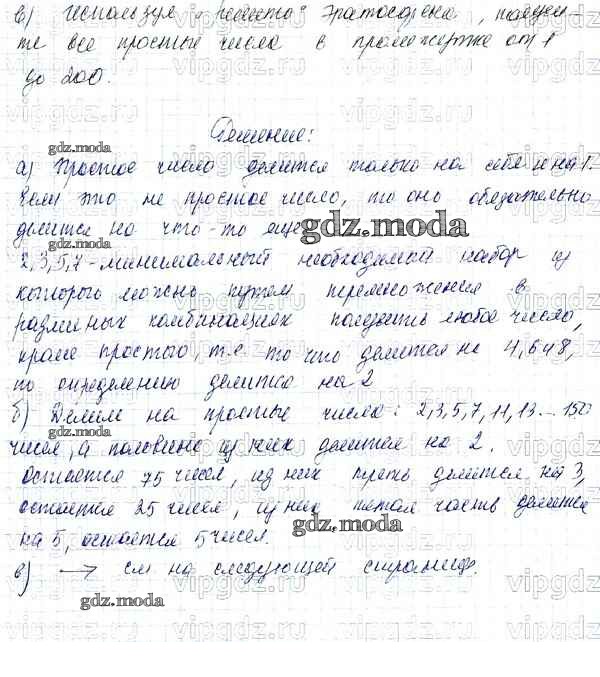 в) используя "решето" Эратосфена, найди
те все простые числа в промежутке от 1
до 200.
Решение:
gdz.moda
а) Простое число делится только на себя и на 1.
Если это не простое число, то оно обязательно
делится на что-то еще.
gdz.moda
gdz.moda
2,3,5,7-минимальный необходимый набор из
которого можно путем перемножения в
различных комбинациях получить любое число,
кроме простого, т.е. то что делится на 4,6 и 8,
по определению делится на 2
б) Делим на простые числа: 2,3,5,7,11,13...150
чисел, а половина из них делится на 2.
Остается 75 чисел, из них треть делится на 3,
остается 25 чисел, из них пятая часть делится
на 5, остается 5 чисел.
gdz.moda
gdz.moda
в) → см на следующей странице.
gdz.moda
vipgdz.ru